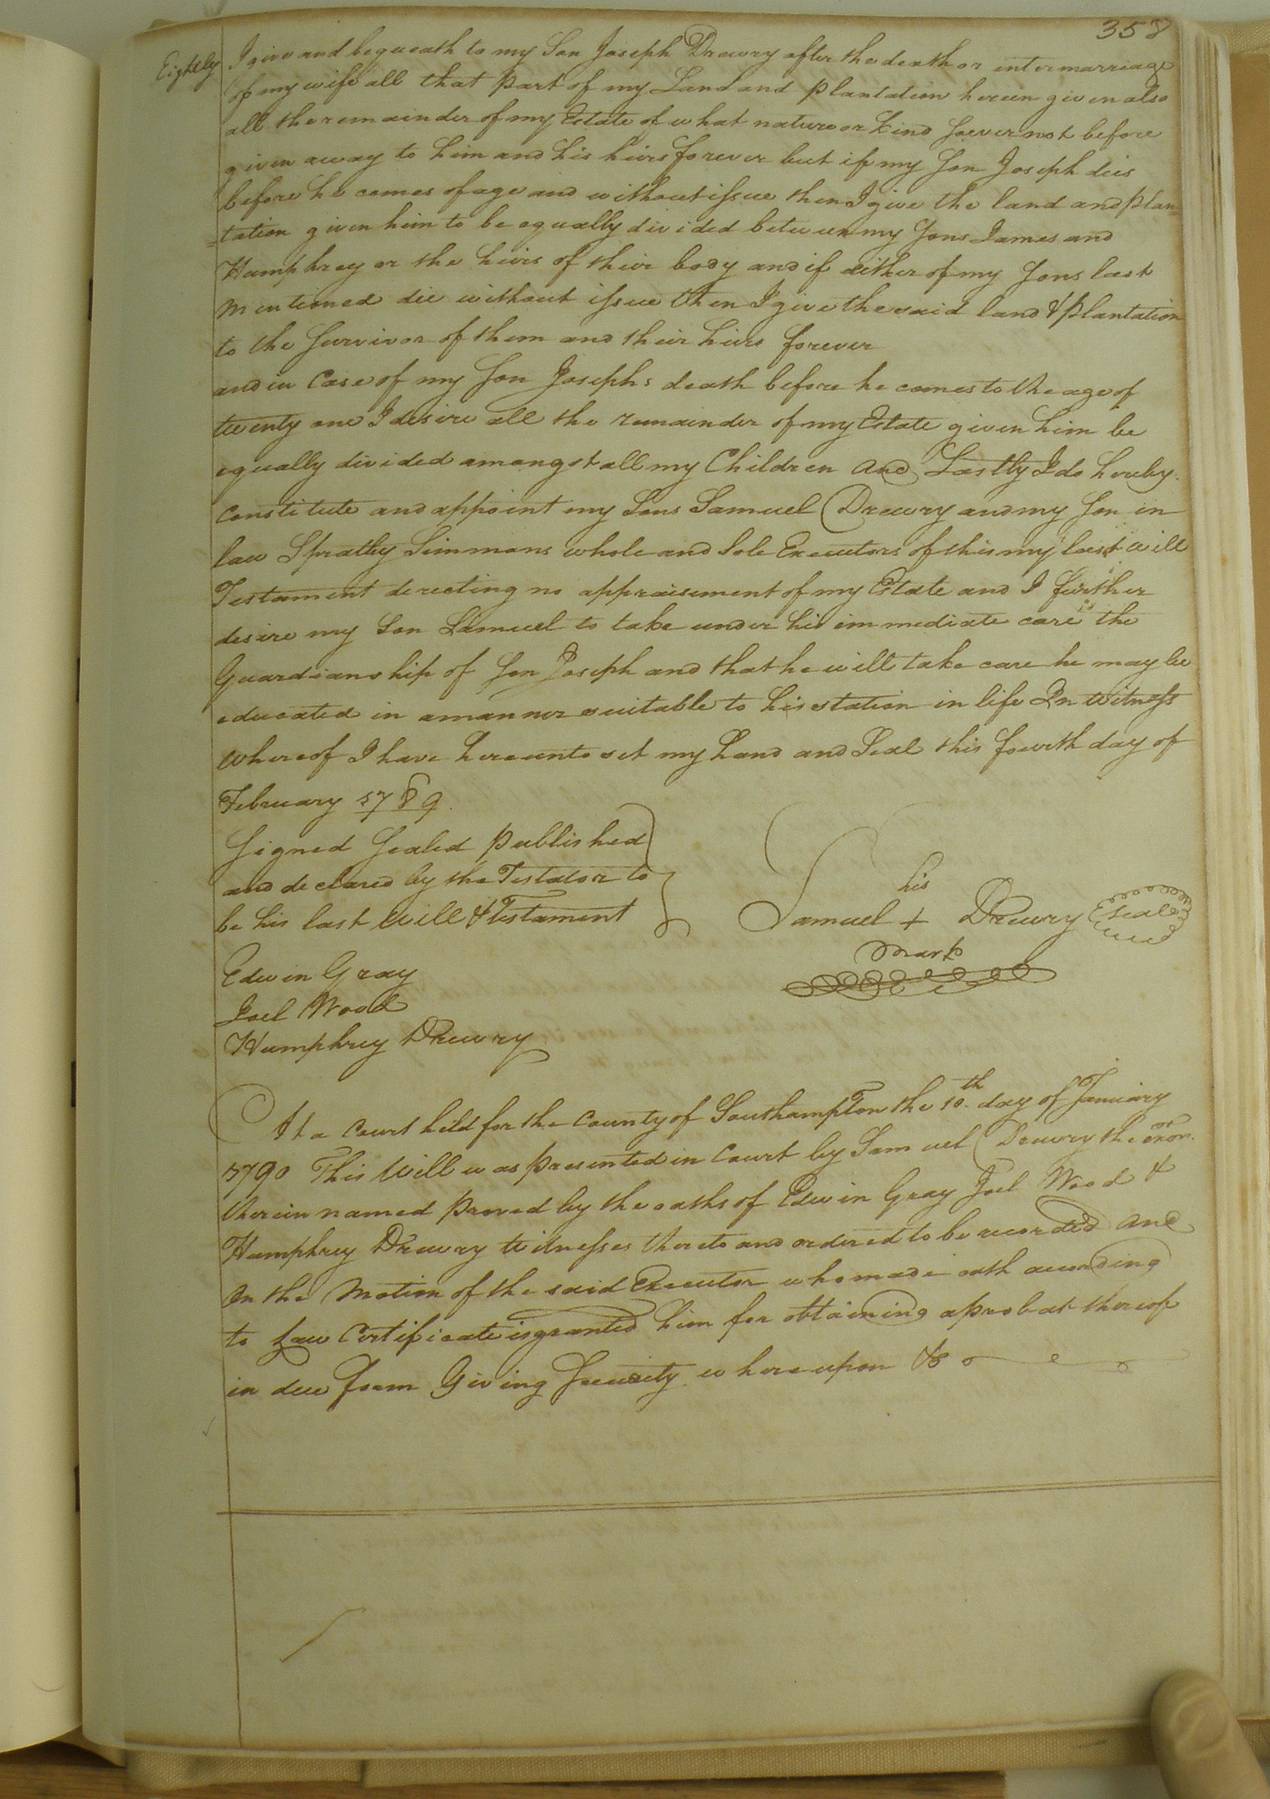 358
Eightly I give and bequeath to my Son Joseph Drewry after the death or intermarriage
of my wife all that part of my Land and plantation herein given also
all the remainder of my Estate of what nature or kind soever not before
given away to him and his heirs forever but if my Son Joseph dies
before he comes of age and without issue then I give the land and plan=
=tation given him to be equally divided between my Sons James and
Humphrey or the heirs of their body and if either of my Sons last
mentioned die without issue then I give the said land & plantation
to the Survivor of them and their heirs forever
and in Case of my Son Josephs death before he comes to the age of
twenty one I desire all the remainder of my Estate given him be
equally divided amongst all my Children and Lastly I do hereby
Constitute and appoint my Sons Samuel Drewry and my Son in
law Spratley Simmons whole and Sole Executors of this my last will
Testament directing no appraisement of my Estate and I further
desire my Son Samuel to take under his immediate care is the
Guardianship of Son Joseph and that he will take care he may be
educated in a manner suitable to his station in life In witness
whereof I have hereunto set my hand and Seal this fourth day of
February 1789.
Signed Sealed published
and declared by the Testator to
be his last will & Testament
his
Samuel + Drewry Seal
mark
Edwin Gray
Joel Wood
Humphrey Drewry
At a Court held for the County of Southampton the 10th day of January
1790 This Will was presented in Court by Samuel Drewry the exor.
therein named proved by the oaths of Edwin Gray Joel Wood &
Humphrey Drewry witnesses thereto and ordered to be recorded and
on the motion of the said Executor who made oath according
to Law Certificate is granted him for obtaining a probat thereof
in due form Giving Security whereupon &c